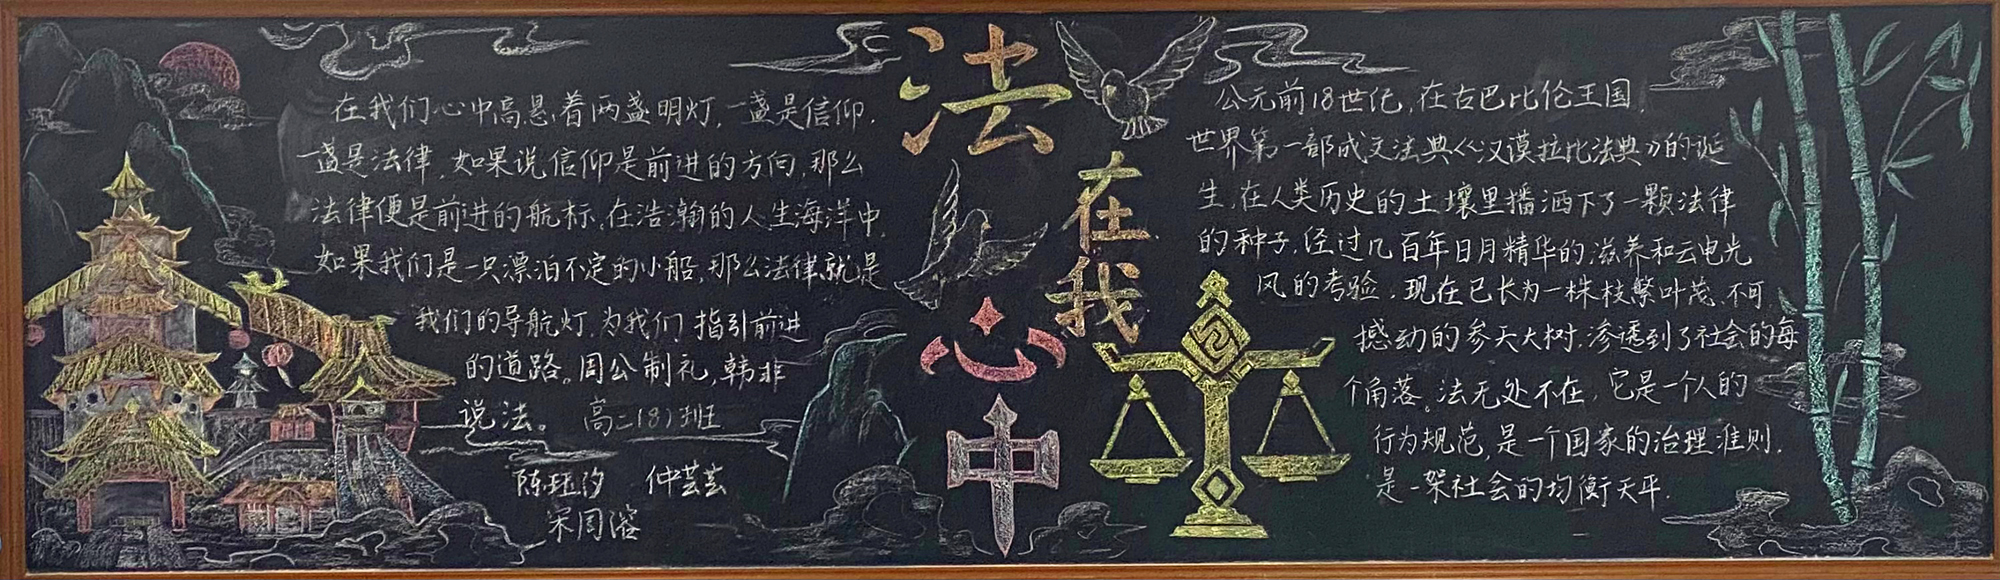 在我们心中高悬着两盏明灯,一盏是信仰.
一盏是法律,如果说信仰是前进的方向,那么
法律便是前进的航标。在浩瀚的人生海洋中,
如果我们是一只漂泊不定的小船,那么法律就是
我们的导航灯,为我们指引前进
的道路。周公制礼,韩非
说法。 高二(8)班
陈珏汐 仲芸芸
宋同溶
法
在我
心中
公元前18世纪,在古巴比伦王国,
世界第一部成文法典《汉谟拉比法典》的诞
生,在人类历史的土壤里播洒下了一颗法律
的种子,经过几百年日月精华的滋养和云电光
风的考验,现在已长为一株枝繁叶茂、不可
撼动的参天大树,渗透到了社会的每
个角落。法无处不在,它是一个人的
行为规范,是一个国家的治理准则,
是一架社会的均衡天平.